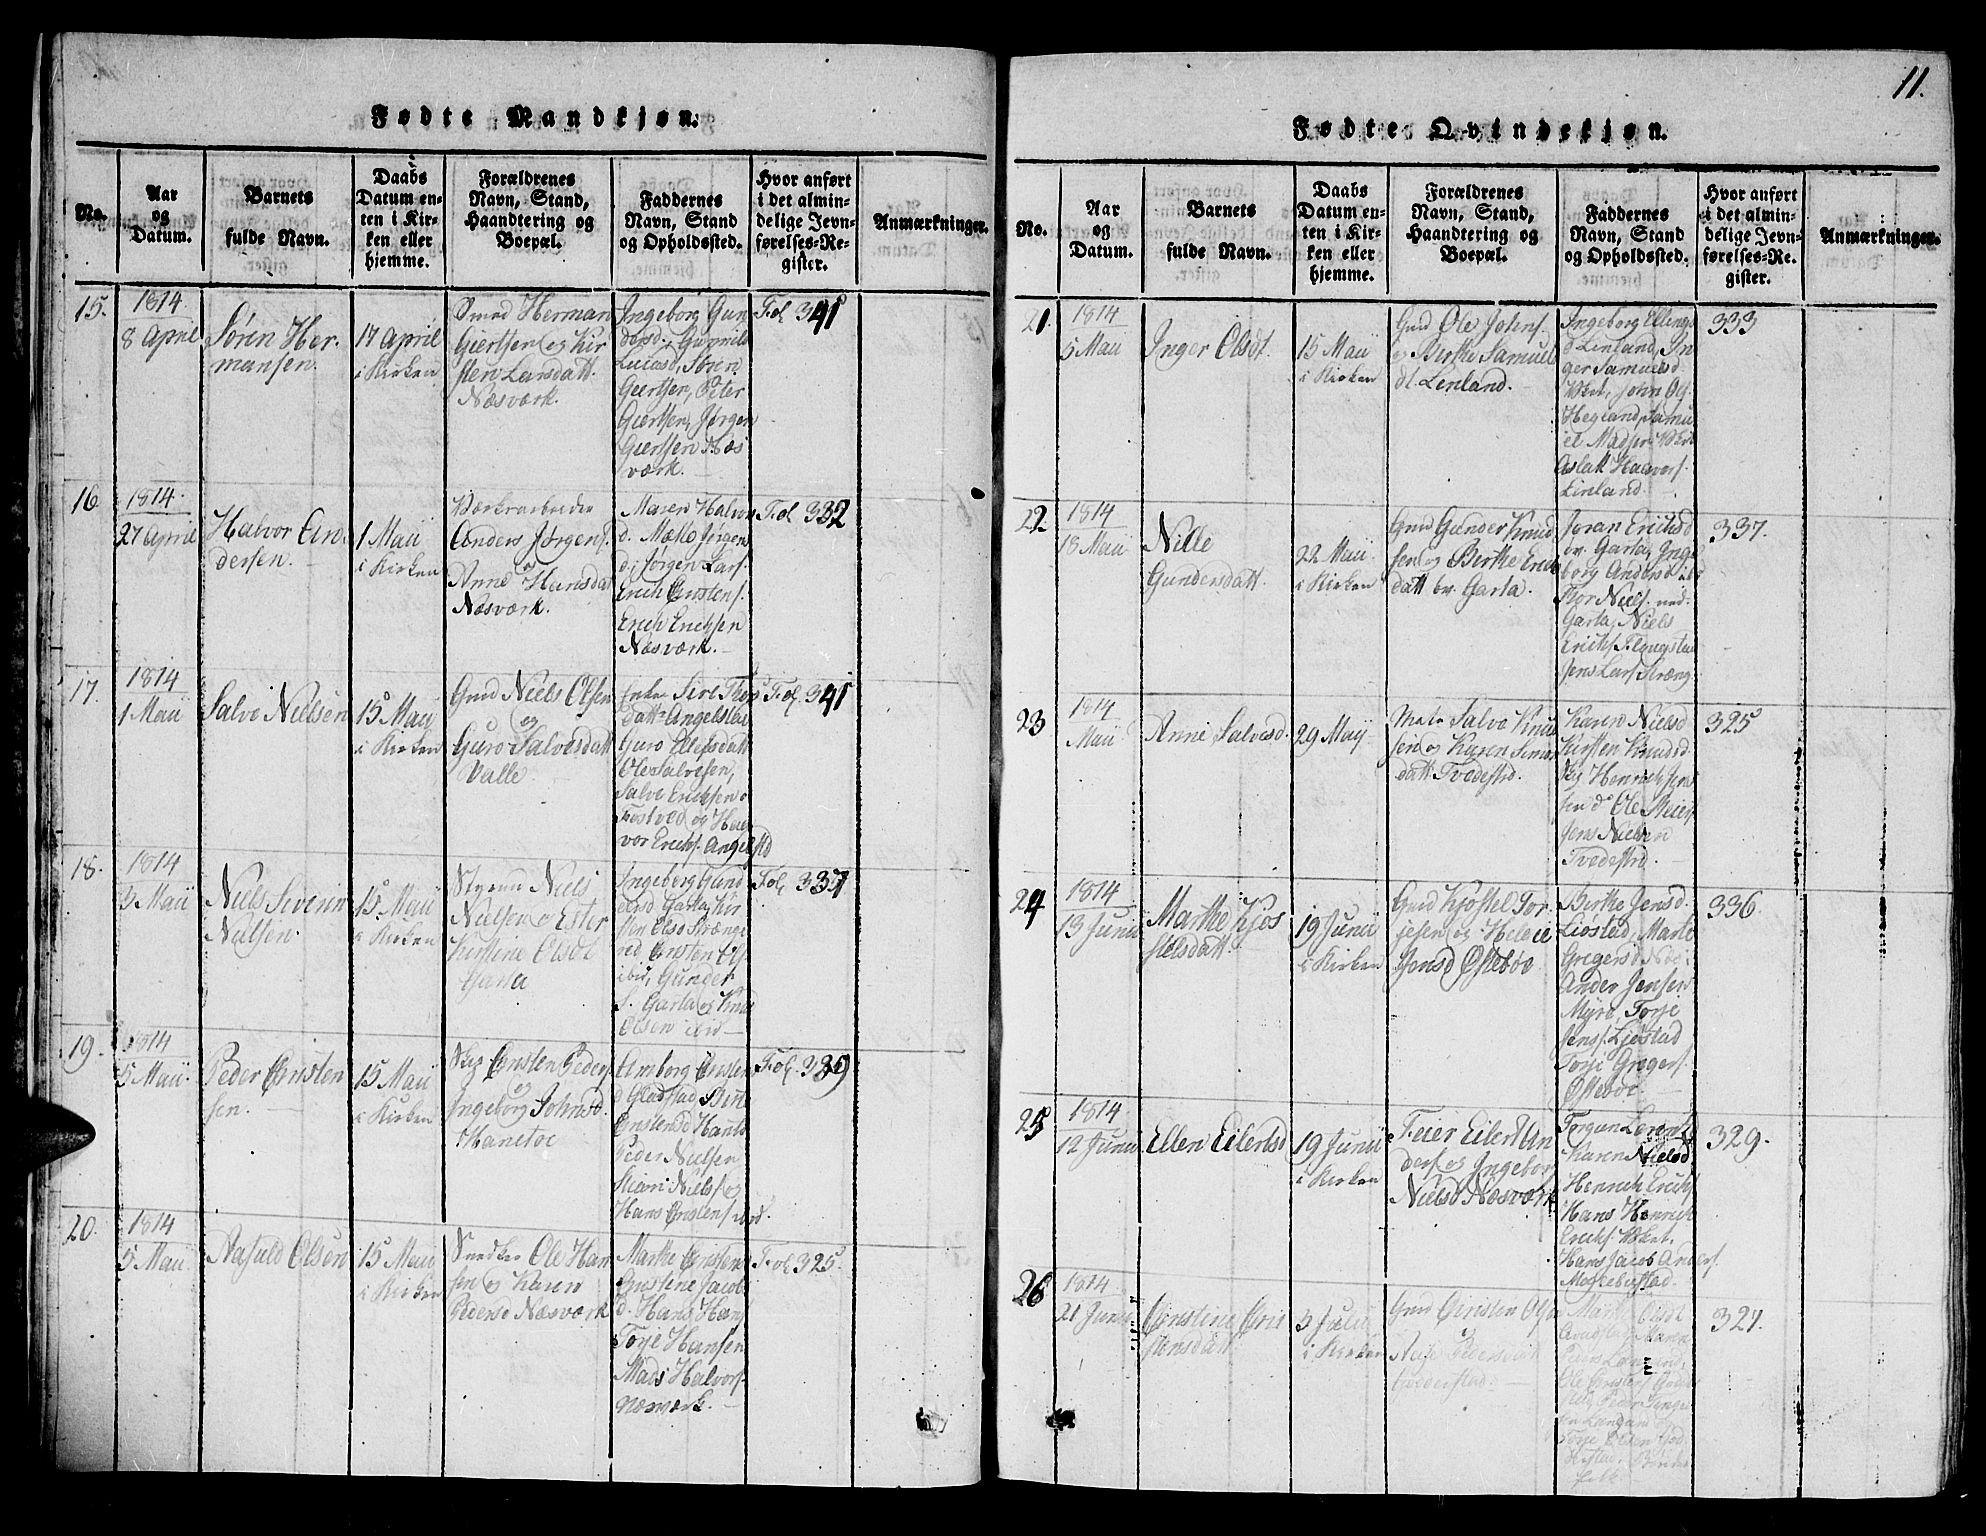 11.
Fødte Mandkjøn.
No.
Aar
og
Datum.
Barnets
fulde Navn.
Daabs
Datum en-
ten i Kir-
ken eller
hjemme.
Forældrenes
Navn, Stand,
Haandtering og
Boepæl.
Faddernes
Navn, Stand
og Opholdssted.
Hvor anført
i det almin-
delige Jevn-
førelses-Re-
gister.
Anmærkninger.
15.
1814
8 April
Søren Her-
mansen.
17 April
i Kirken
Smed Herman
Giertsen og Kir
sten Larsdatt.
Næsværk.
Ingeborg Gun
dersd.
Lucasd, Søren
Geertsen, Peter
Giertsen, Jørgen
Giertsen Næs
værk.
Fol 341
16.
1814.
27 April
Halvor An-
dersen.
1 Maii
i Kirken
Værksarbeider
Anders Jørgens.
og
Anne Hansda
Næsværk.
Maren Halvor
d. Mætte Jørgen
d, Jørgen Lars.
Erich Cristens.
Erich Erichsen
Næsværk.
Fol 332
17.
1814
1 Maii
Salve Nielsen
15 Maii
i Kirken
Gmd Niels Olsen
og
Guro Salvesdatt
Valle
Enke Siri Thors
datt Angelstad
Guro Ellefsdatt
Ole Salvesen,
Salve Erichsen
Fostved og Hal
vor Erichs. Angelstd
Fol. 341
18.
1814
3 Maii
Niels Severin
Nielsen.
15 Maii
i Kirken
Styrm Niels
Nielsen og Ester
Kirstine Olsdt
Garta
Ingeborg Gund
dersd Garta, Kir
sten Olsd Strænge
Cristen Ols
ibid, Gunder
Garta og Knud
Olsen ibid
Fol 337
19.
1814
5 Maii
Peder Cristen
sen.
15 Maii
i Kirken
Cristen Peders
og
Ingeborg Johnsd.
Hanetoe
Amborg Cristens
d Gladstad
Cristensd Hanto
Peder Nielsen
Niels. og
Hans Cristens ibid.
Fol. 339
20.
1814
5 Maii
Aasuld Olsen
15 Maii
i Kirken
Snedker Ole Han
sen og Karen
Pedersd Næsværk
Marthe Cristens
Cristine Jacob
d. Hans Hans
Torje Hansen
Mads Halvors.
Næsværk.
Fol 325.
Fødte Qvindekjøn.
No.
Aar
og
Datum.
Barnets
fulde Navn.
Daabs
Datum en-
ten i Kir-
ken eller
hjemme.
Forældrenes
Navn, Stand,
Haandtering og
Boepæl.
Faddernes
Navn, Stand
og Opholdssted.
Hvor anført
i det almin-
delige Jevn-
førelses-Re-
gister.
Anmærkninger.
21.
1814
5 Maii
Inger Olsdt.
15 Maii
i Kirken
Gmd Ole Johns.
og Birthe Samuels
dt. Lenland.
Ingeborg Ellings
d Lenland, In
ger Samuelsd
John Ols
Hegland, Samu
el Madsen
Aslak Halvors.
Linland.
333
22.
1814
18 Maii
Nille
Gundersdatt.
22 Maii
i Kirken
Gmd Gunder Knud
sen og Birthe Erics
datt Garta.
Joran Ericksd
Garta, Inge
borg Andersd
Thor Niels. ned.
Garta, Niels
Ericks.
Jens Lars Stræng
337.
23
1814
Maii
Anne Salvesd.
29 Maij
Salve Knud
sen og Karen Simons
datt Tvedestrd.
Karen Nielsd
Kirsten Knudsd
Henrich Jens
sen Ole Meier
Jens Nielsen
Tvedestrd.
325
24
1814
13 Junii
Marthe Kjøs
telsdatt.
19 Junii
i Kirken
Gmd Kjøstel Tor
jesen og Helene
Jensd Østebøe
Birthe Jensd.
Liøstad, Marte
Gregersd
Ander Jensen
Myre, Torje
Jens. Liøstad
Torje Gregers.
Østebøe
336.
25
1814
12 Junii
Ellen Eilertsd
19 Junii
i Kirken
Feier Eilert An
ders. og Ingebor
Nielsd Næsværk
Torgun Lorents
Karen Nielsd
Henrich Erichs.
Hans Henrich
Erichs.
Hans Jacob Anders.
329.
26
1814
21 Junii
Cristine Cris
tensdatt
3 Julii
i Kirken
Gmd Cristen Olsen
og
Pedersdatt
Marthe Olsdt
Maren
Ole Cristens.
327.